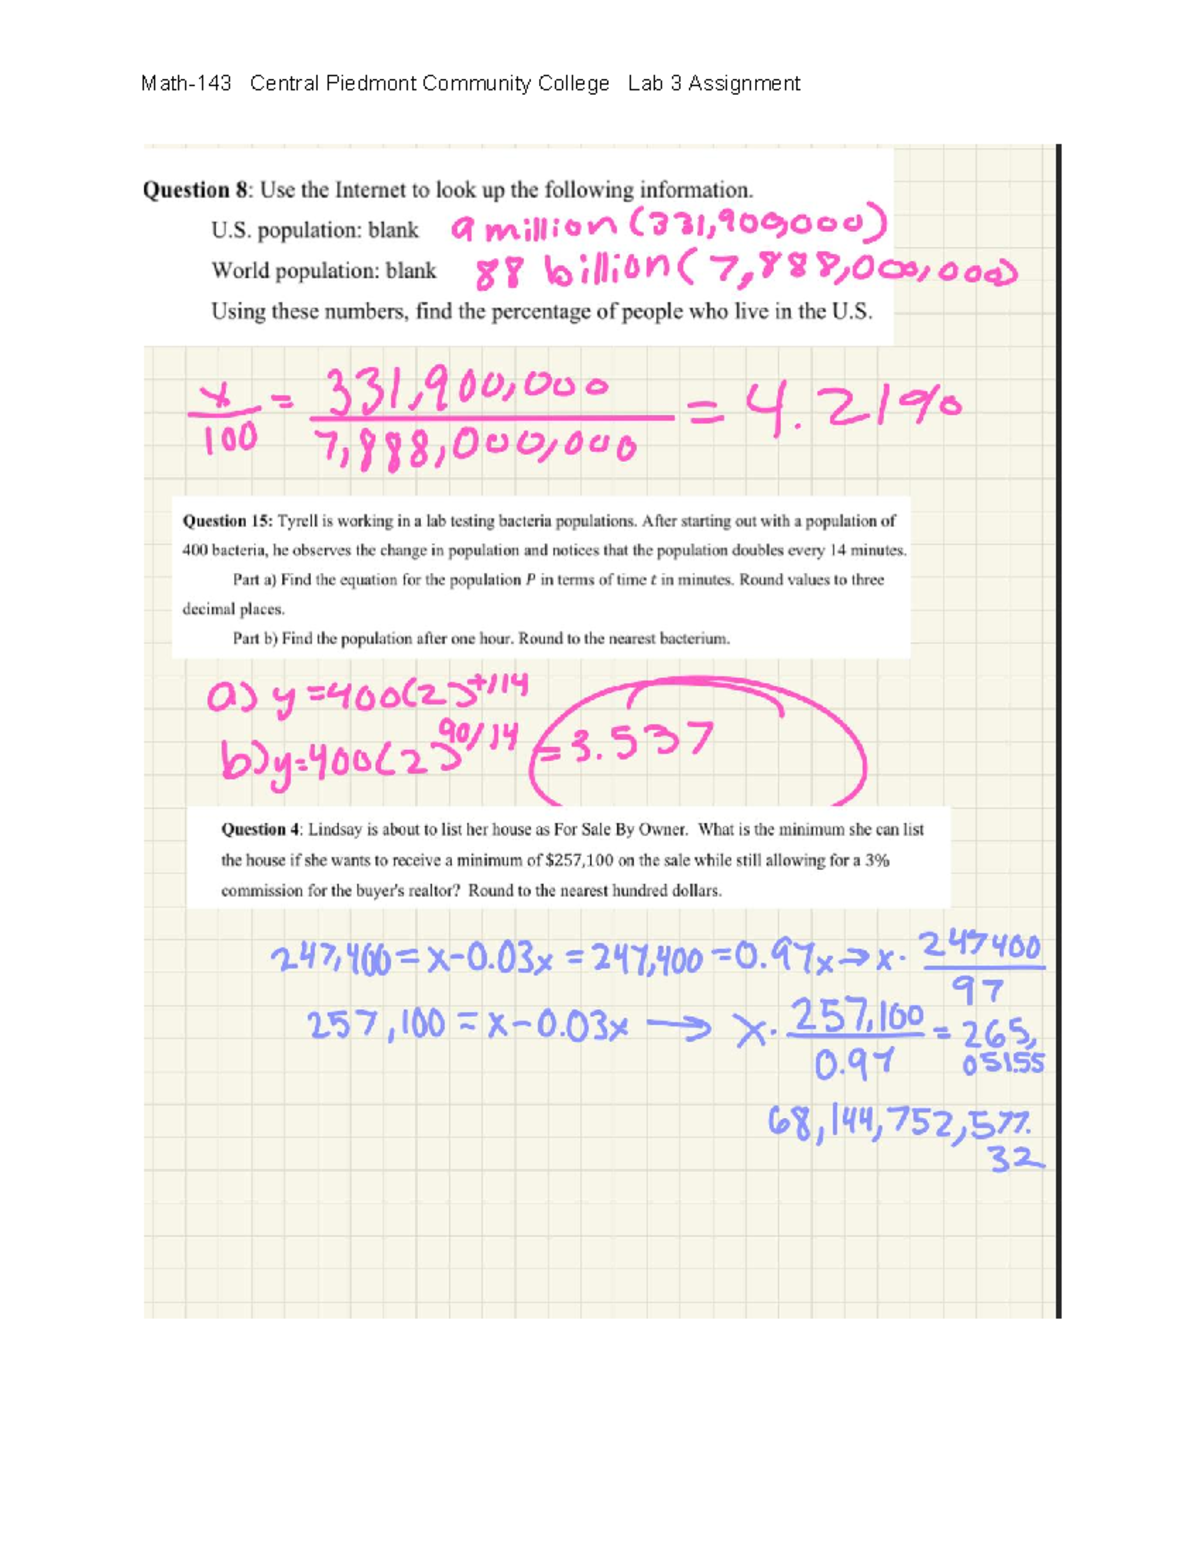 Math-143 Central Piedmont Community College Lab 3 Assignment
Question 8: Use the Internet to look up the following information.
U.S. population: blank 9 million (331,900,000)
World population: blank 88 billion (7,888,000,000)
Using these numbers, find the percentage of people who live in the U.S.
x/100 = 331,900,000/7,888,000,000 = 4.21%
Question 15: Tyrell is working in a lab testing bacteria populations. After starting out with a population of
400 bacteria, he observes the change in population and notices that the population doubles every 14 minutes.
Part a) Find the equation for the population P in terms of time t in minutes. Round values to three
decimal places.
Part b) Find the population after one hour. Round to the nearest bacterium.
a) y=400(2)^t/14
b) y=400(2)^90/14 = 3.537
Question 4: Lindsay is about to list her house as For Sale By Owner. What is the minimum she can list
the house if she wants to receive a minimum of $257,100 on the sale while still allowing for a 3%
commission for the buyer's realtor? Round to the nearest hundred dollars.
247,400 = x-0.03x = 247,400 = 0.97x → x. 247400/97
257,100 = x-0.03x → x. 257,100/0.97 = 265,051.55
68,144,752,577.
32